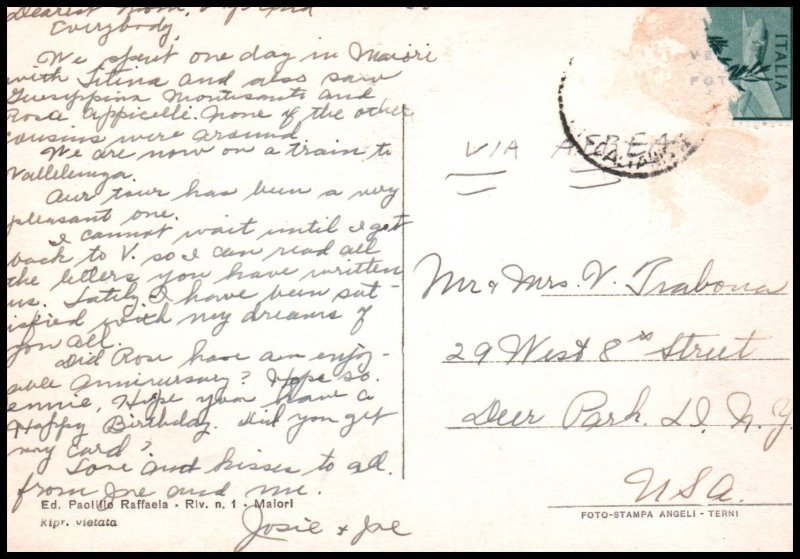 Dearest Mom,
Everybody,
We spent one day in Maiori
with Titina and also saw
Guiseppina Montesanto and
Rosa Appicelli. None of the other
cousins were around.
We are now on a train to
Vallelunga.
Our tour has been a very
pleasant one.
I cannot wait until I get
back to V. so I can read all
the letters you have written
us. Lately I have been sat-
isfied with my dreams of
you all.
Did Rose have an enjoy-
able anniversary? Hope so.
ennie, Hope you have a
Happy Birthday. Did you get
my card?
Love and kisses to all.
from Joe and me.
Josie + Joe
Ed. Paolillo Raffaela - Riv. n. 1 - Maiori
Ripr. vietata
ITALIA
VIA
Mr & Mrs. V. Trabona
29 West 8th Street
Deer Park. L.I. N.Y.
USA.
FOTO-STAMPA ANGELI - TERNI